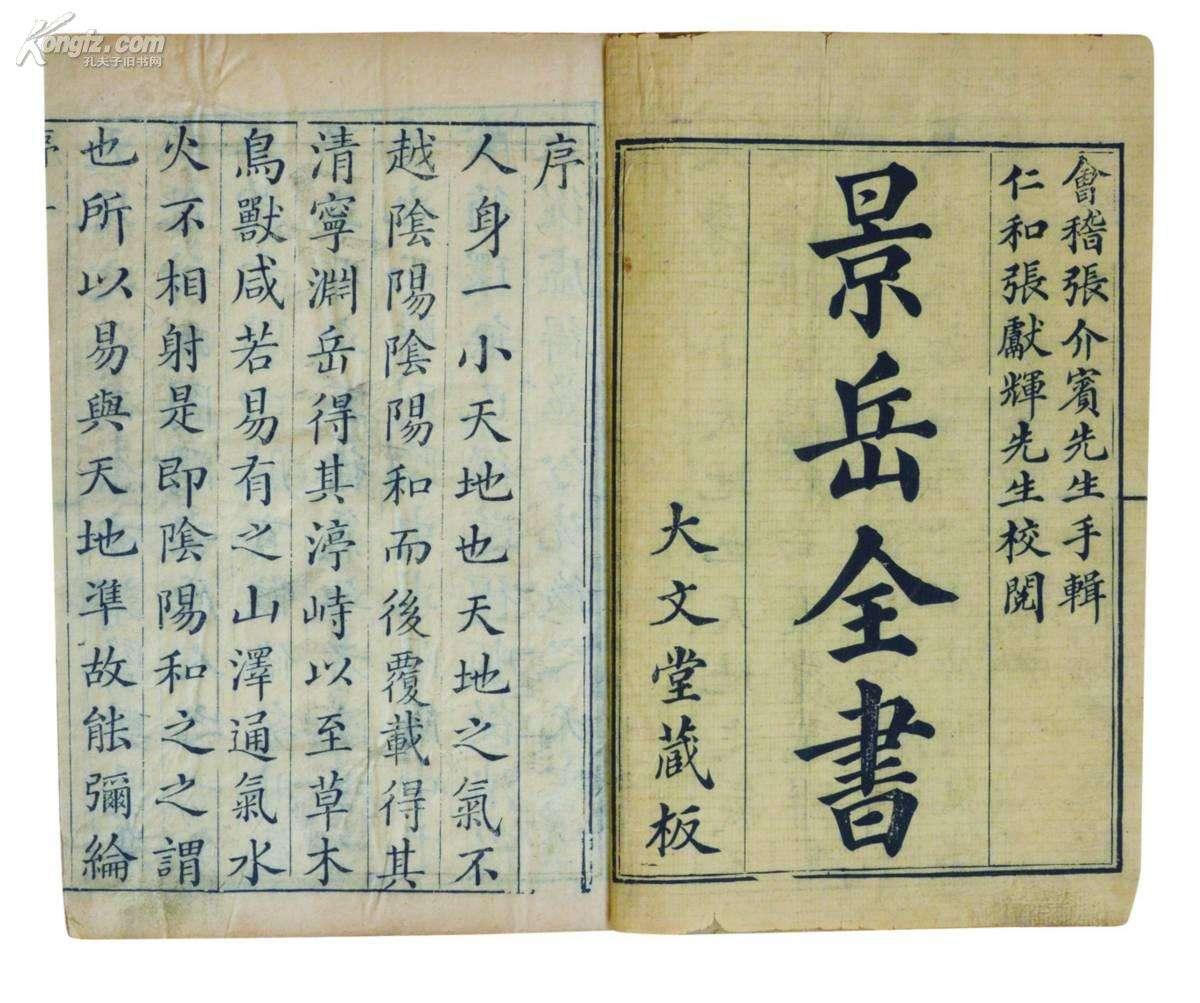 會稽張介賓先生手輯
仁和張獻輝先生校閱
景岳全書
大文堂藏板
序
人身一小天地也天地之氣不
越陰陽陰陽和而後覆載得其
清寧淵岳得其渟峙以至草木
鳥獸咸若易有之山澤通氣水
火不相射是即陰陽和之之謂
也所以易與天地準故能彌綸
序 一
Kongfz.com
孔夫子旧书网